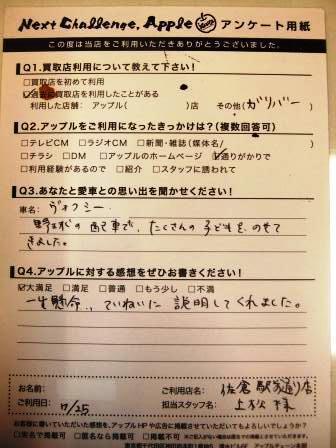 Next Challenge, Apple アンケート用紙
この度は当店をご利用いただきありがとうございました。
Q1.買取店利用について教えて下さい!
□買取店を初めて利用
☑過去に買取店を利用したことがある
利用した店舗: アップル( )店 その他(ガリバー)
Q2.アップルをご利用になったきっかけは?(複数回答可)
□テレビCM □ラジオCM □新聞・雑誌(媒体名/ )
□チラシ □DM □アップルのホームページ ☑通りがかりで
□利用経験があるので □紹介 □スタッフに誘われて
Q3.あなたと愛車との思い出を聞かせください!
車名: ヴォクシー
野球の配車で、たくさんの子どもを、のせて
きました。
Q4.アップルに対する感想をぜひお書きください!
☑大満足 □満足 □普通 □もう少し □不満
一生懸命、ていねいに説明してくれました。
お名前: ご利用店名: 佐倉駅前通り店
ご利用日: 7/25 担当スタッフ名: 上松様
お客様に書いていただいた感想を、アップルHPや広告に掲載させていただいてもよろしいでしょうか?
□実名で掲載可 □匿名なら掲載可 □掲載不可